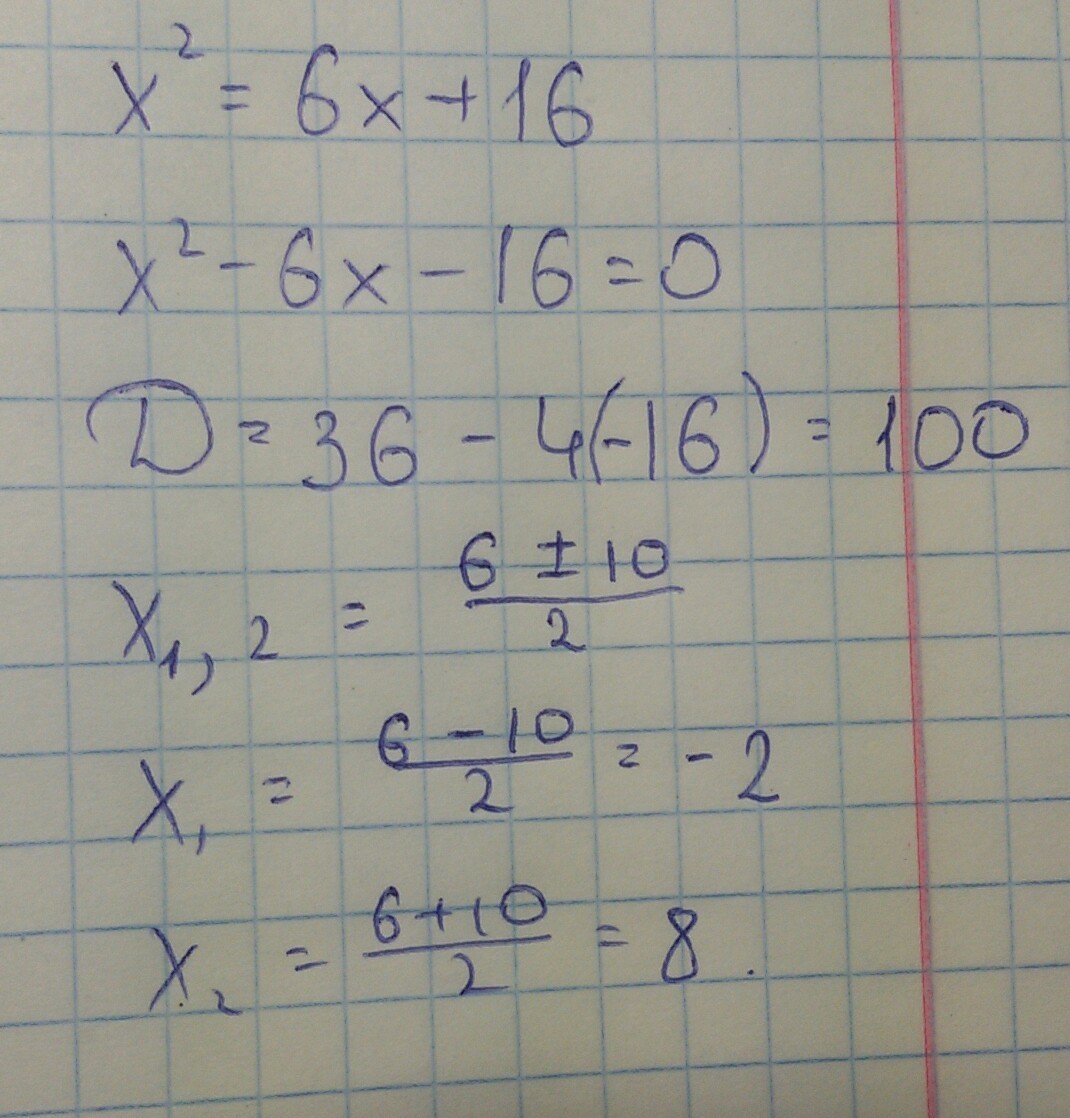 x² = 6x + 16
x² - 6x - 16 = 0
D = 36 - 4(-16) = 100
x₁,₂ = (6 ± 10)/2
x₁ = (6 - 10)/2 = -2
x₂ = (6 + 10)/2 = 8.